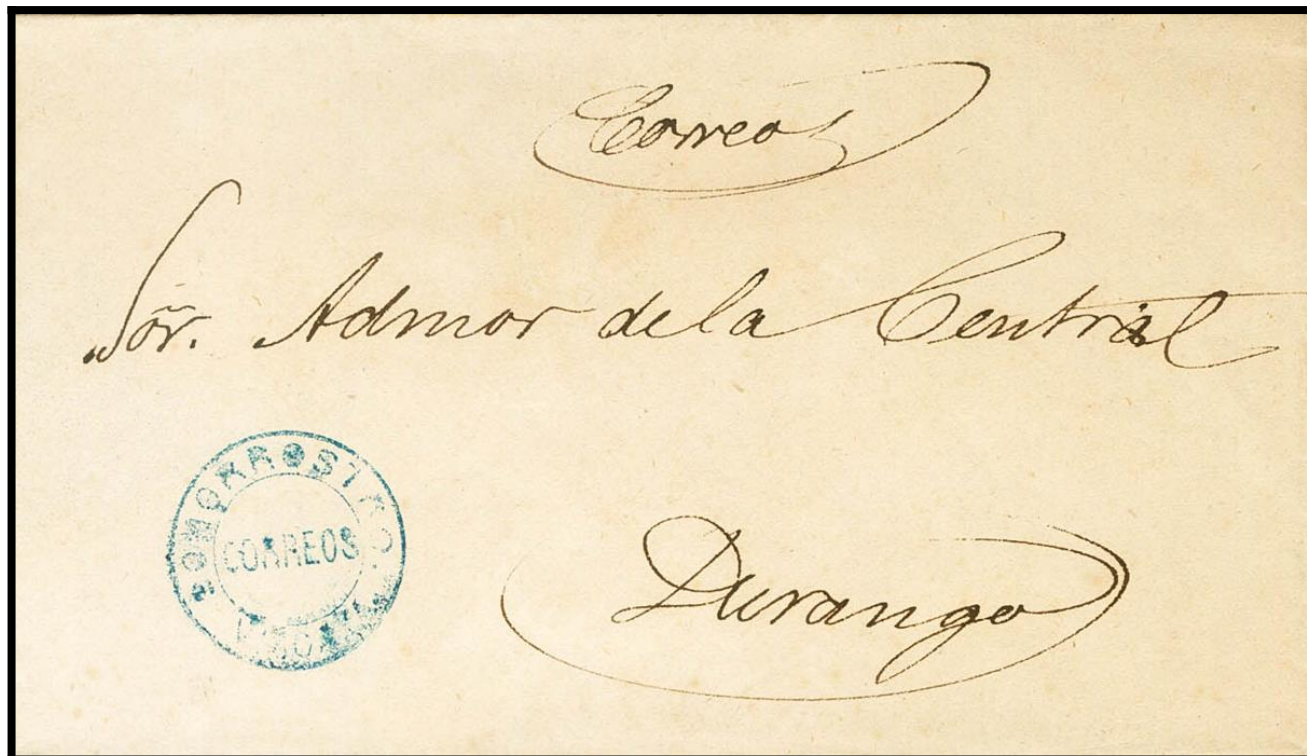 Correos
Sõr. Admor de la Central
SOMORROSTRO.
CORREOS
VIZCAYA
Durango